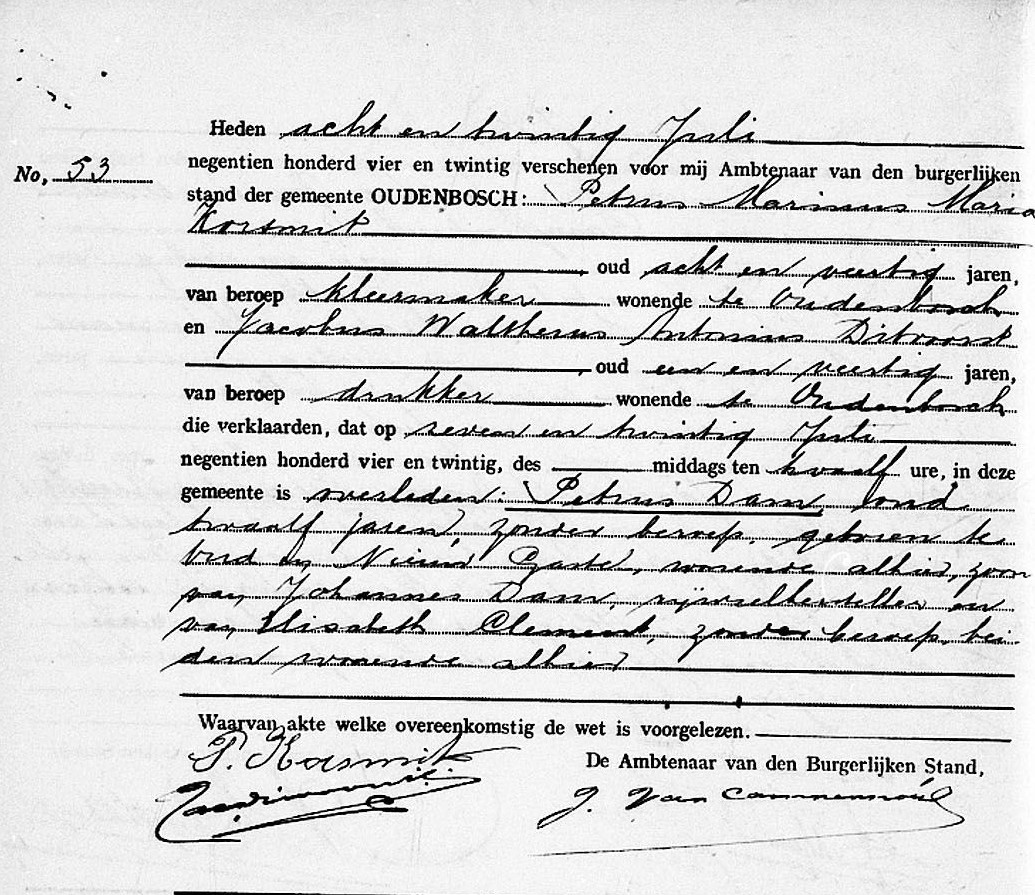 Heden acht en twintig Juli
negentien honderd vier en twintig verschenen voor mij Ambtenaar van den burgerlijken
No. 53
stand der gemeente OUDENBOSCH: Petrus Marinus Maria
Korsmit
, oud acht en veertig jaren,
van beroep kleermaker wonende te Oudenbosch
en Jacobus Waltherus Antonius Ditvoorst
, oud een en veertig jaren,
van beroep drukker wonende te Oudenbosch
die verklaarden, dat op zeven en twintig Juli
negentien honderd vier en twintig, des middags ten twaalf ure, in deze
gemeente is overleden: Petrus Dam oud
twaalf jaren, zonder beroep, geboren te
Oud en Nieuw Gastel, wonende alhier, zoon
van Johannes Dam, rijwielhersteller en
van Elisabeth Clement, zonder beroep, bei-
den wonende alhier
Waarvan akte welke overeenkomstig de wet is voorgelezen.
P. Korsmit
De Ambtenaar van den Burgerlijken Stand,
J. van